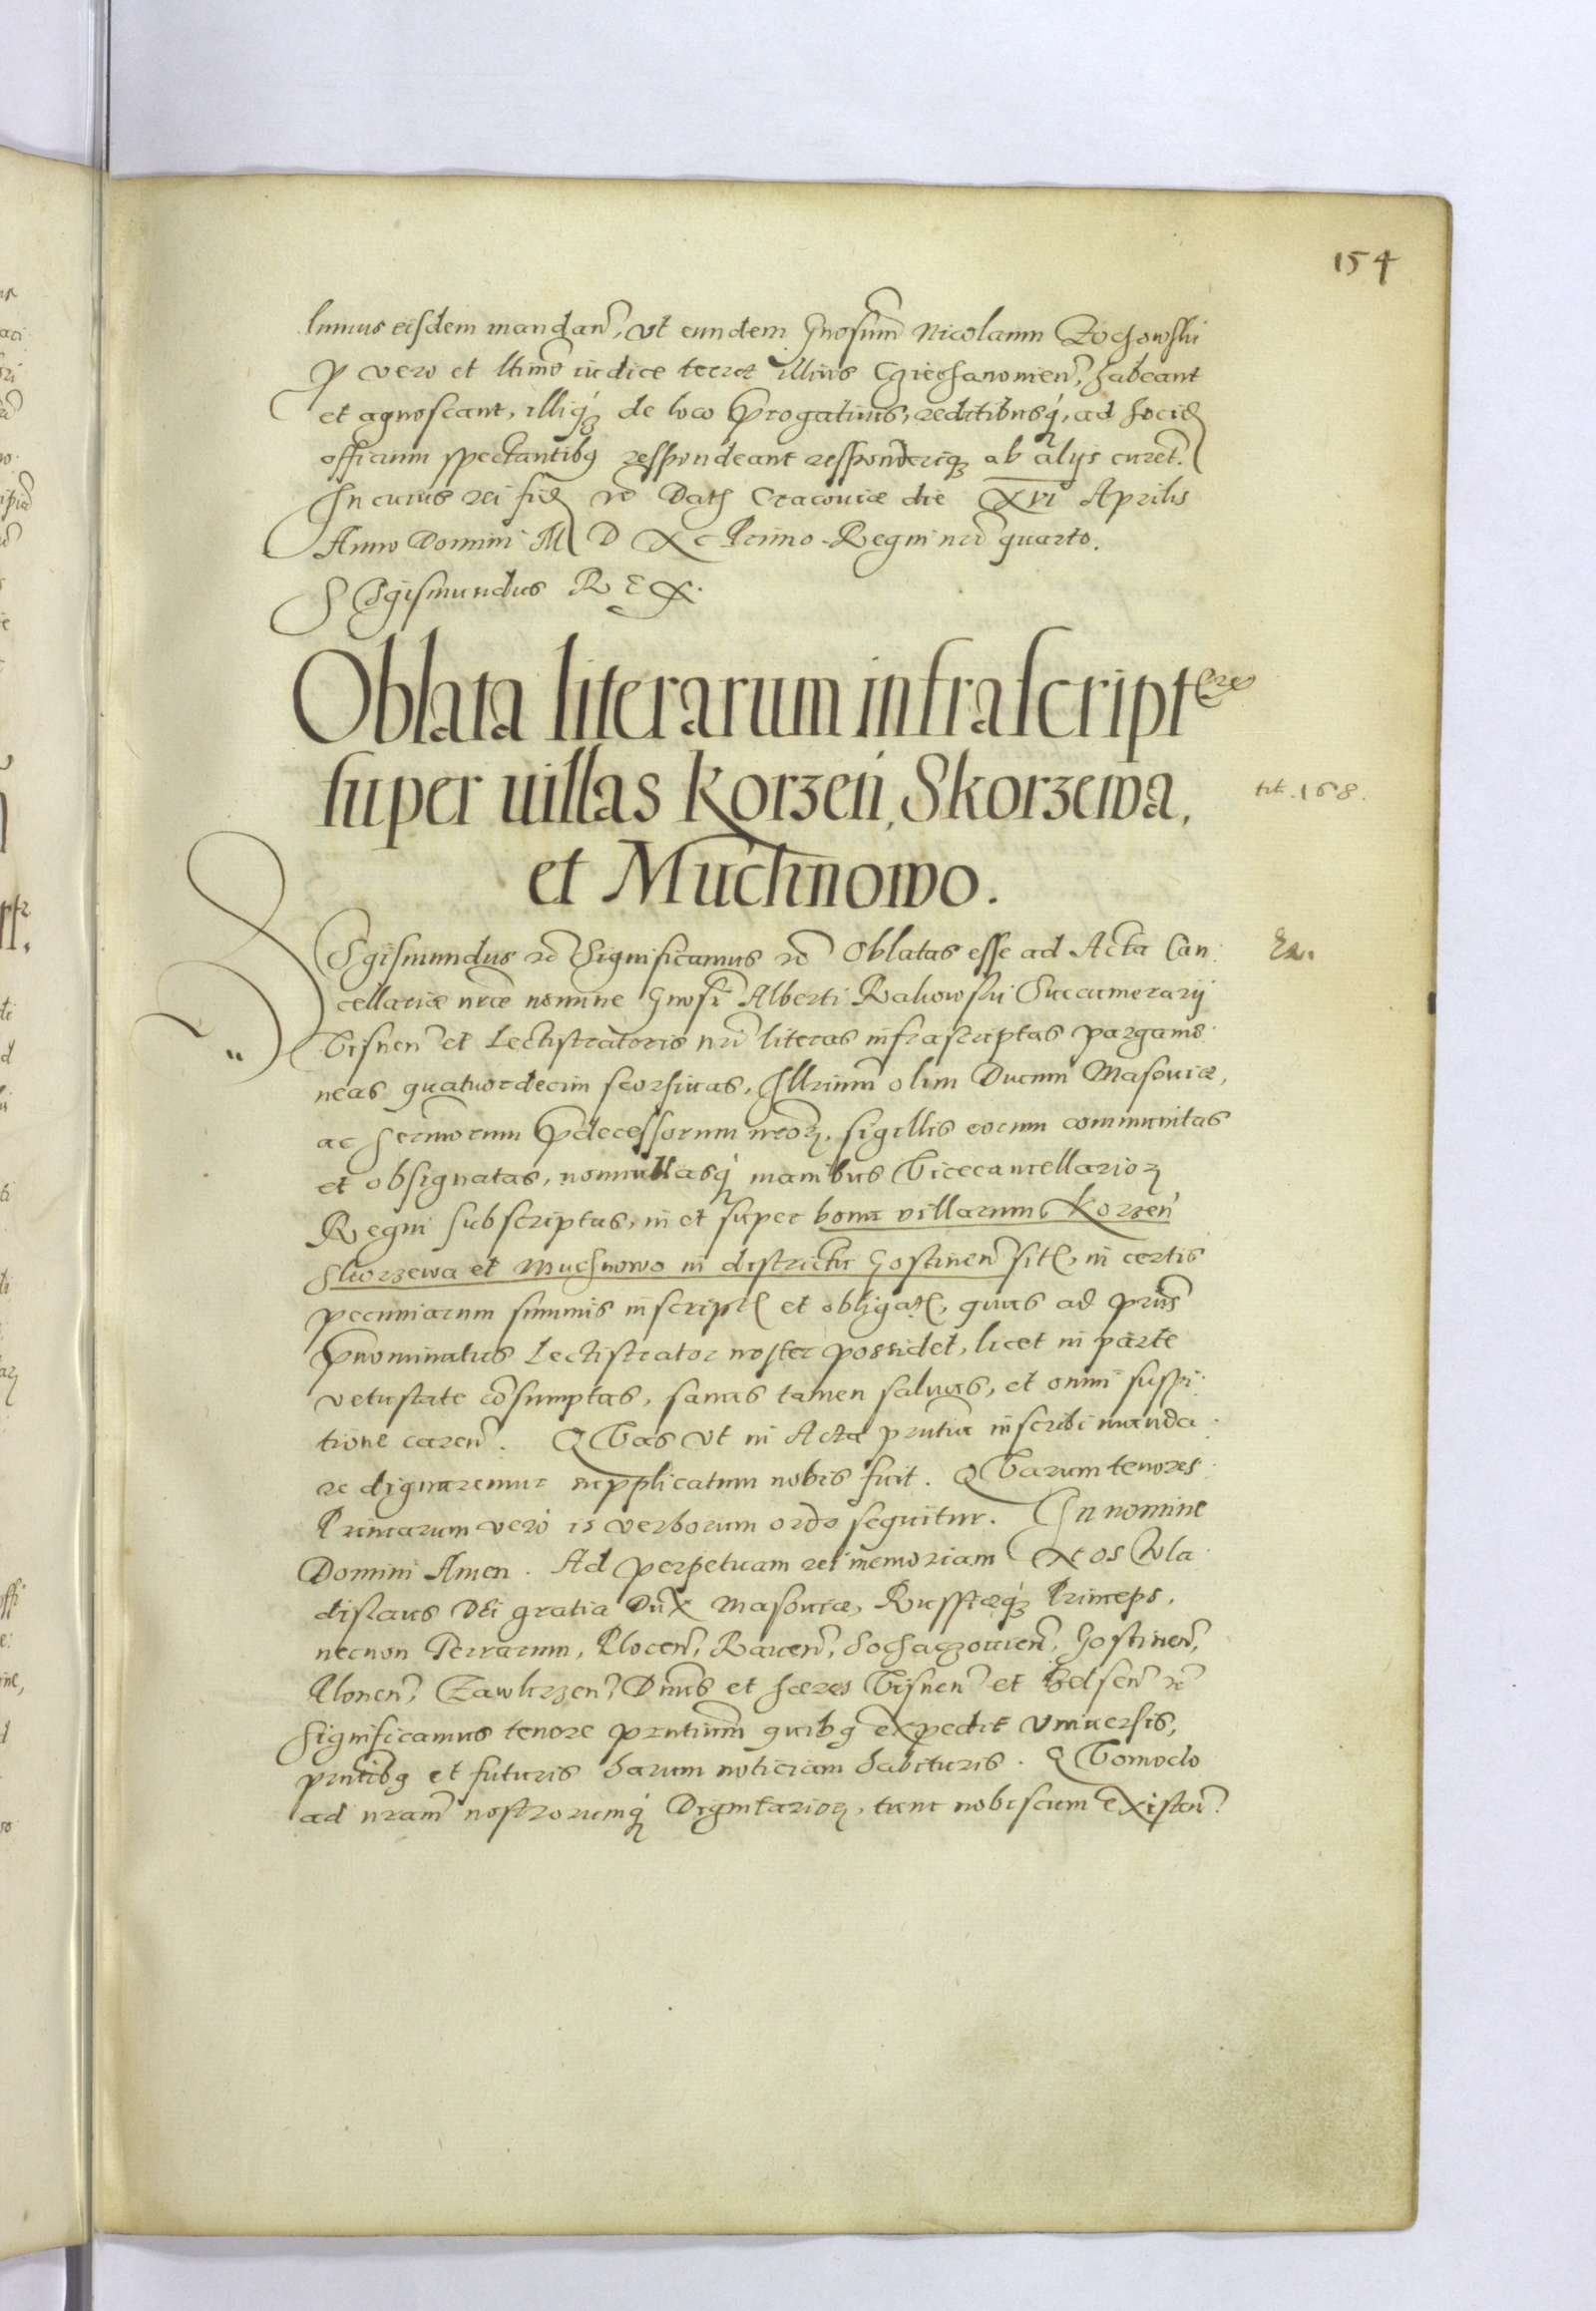 154
lumus eisdem mandan̄, vt eundem Gnosum Nicolaum Zochowski
p vero et ltimo iudice terræ illius Cziechanouien̄, habeant
et agnoscant, illiq́ꝫ de loco p̱rogatiuis, reditibusq́, ad hoc id
officium spectantibꝯ respondeant responderiqꝫ ab alijs curet.
In cuius rei fid rc̄ Dat Cracouiæ die XVI Aprilis
Anno Domini M D XC Primo Regni nr̄i quarto.
Sigismundus REX.
Oblata literarum infrascript
super uillas Korzeń, Skorzewa,
tit. 168.
et Muchnowo.
Sigismundus rc̄ Significamus rc̄ Oblatas esse ad Acta Can
Ex.
cellariæ nr̄æ nomine Gnosi Alberti Rakowski Succamerarij
Visnen̄ et Lectistratoris nr̄i literas infrascriptas pargame
neas quatuordecim seorsiuas, Illrium olim Ducum Masouiæ,
ac Sermorum p̱decessorum nrorꝫ, sigillis eorum communitas
et obsignatas, nonnullasq́ manibus Vicecancellariorꝫ
Regni subscriptas, in et super bona villarum Korzeń
Skorzewa et Muchnowo in districtu Gostinen̄ sit, in certis
pecuniarum summis inscript et obligat, quas ad pn̄s
p̱nominatus Lectistrator noster possidet, licet in parte
vetustate cōsumptas, sanas tamen saluas, et omni suspi
tione caren̄. QVas vt in Acta pn̄tia inscribi manda
re dignaremur supplicatum nobis fuit. QVarum tenores
Primarum verò is verborum ordo sequitur. In nomine
Domini Amen. Ad perpetuam rei memoriam Nos Wla
dislaus Dei gratia Dux Masouiæ, Russiæq́ꝫ Princeps,
necnon Terrarum, Plocen̄, Rauen̄, Sochaczouien̄, Gostinen̄,
Plonen̄, Zawkrzen̄, Dnus et hæres Visnen̄ et Belsen̄ rc̄
Significamus tenore pn̄tium quibꝯ expedit vniuersis,
pn̄tibꝯ et futuris harum noticiam habituris. QVomodo
ad nram̄ nostrorumq́ Dignitariorꝫ, tunc nobiscum existen̄